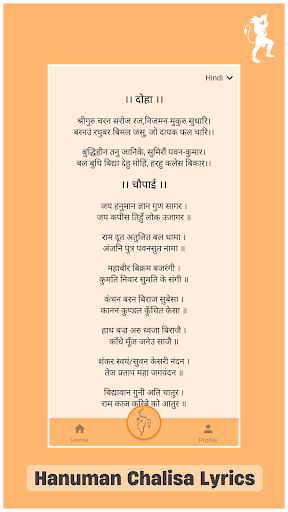 Hindi
।। दोहा ।।
श्रीगुरु चरन सरोज रज,निजमन मुकुरु सुधारि।
बरनउं रघुबर बिमल जसु, जो दायक फल चारि।।
बुद्धिहीन तनु जानिके, सुमिरौं पवन-कुमार।
बल बुधि बिद्या देहु मोहिं, हरहु कलेस बिकार।।
।। चौपाई ।।
जय हनुमान ज्ञान गुण सागर ।
जय कपीस तिहुँ लोक उजागर ॥
राम दूत अतुलित बल धामा ।
अंजनि पुत्र पवनसुत नामा ॥
महाबीर बिक्रम बजरंगी ।
कुमति निवार सुमति के संगी ॥
कंचन बरन बिराज सुबेसा ।
कानन कुण्डल कुँचित केसा ॥
हाथ बज्र अरु ध्वजा बिराजै ।
काँधे मूँज जनेउ साजै ॥
शंकर स्वयं/सुवन केसरी नंदन ।
तेज प्रताप महा जगवंदन ॥
बिद्यावान गुनी अति चातुर ।
राम काज करिबे को आतुर ॥
Home
Profile
Hanuman Chalisa Lyrics